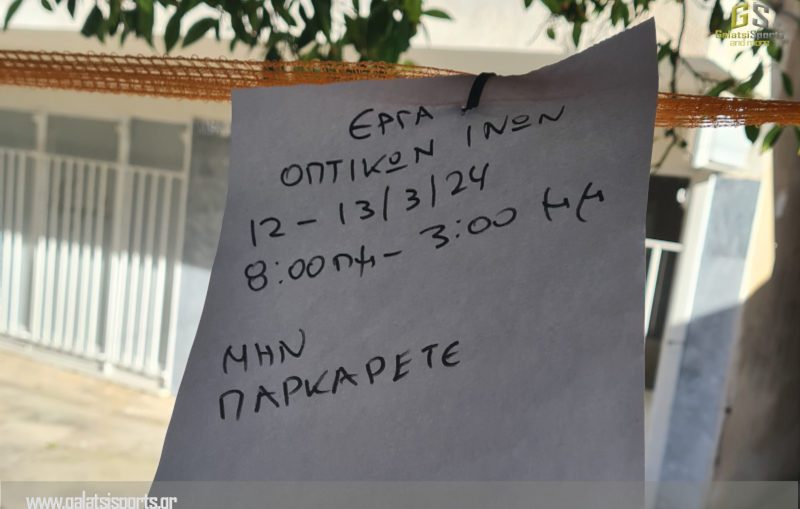 GS
GalatsiSports
and more
ΕΡΓΑ
ΟΠΤΙΚΩΝ ΙΝΩΝ
12 - 13/3/24
8:00πμ - 3:00 μμ
ΜΗΝ
ΠΑΡΚΑΡΕΤΕ
www.galatsisports.gr